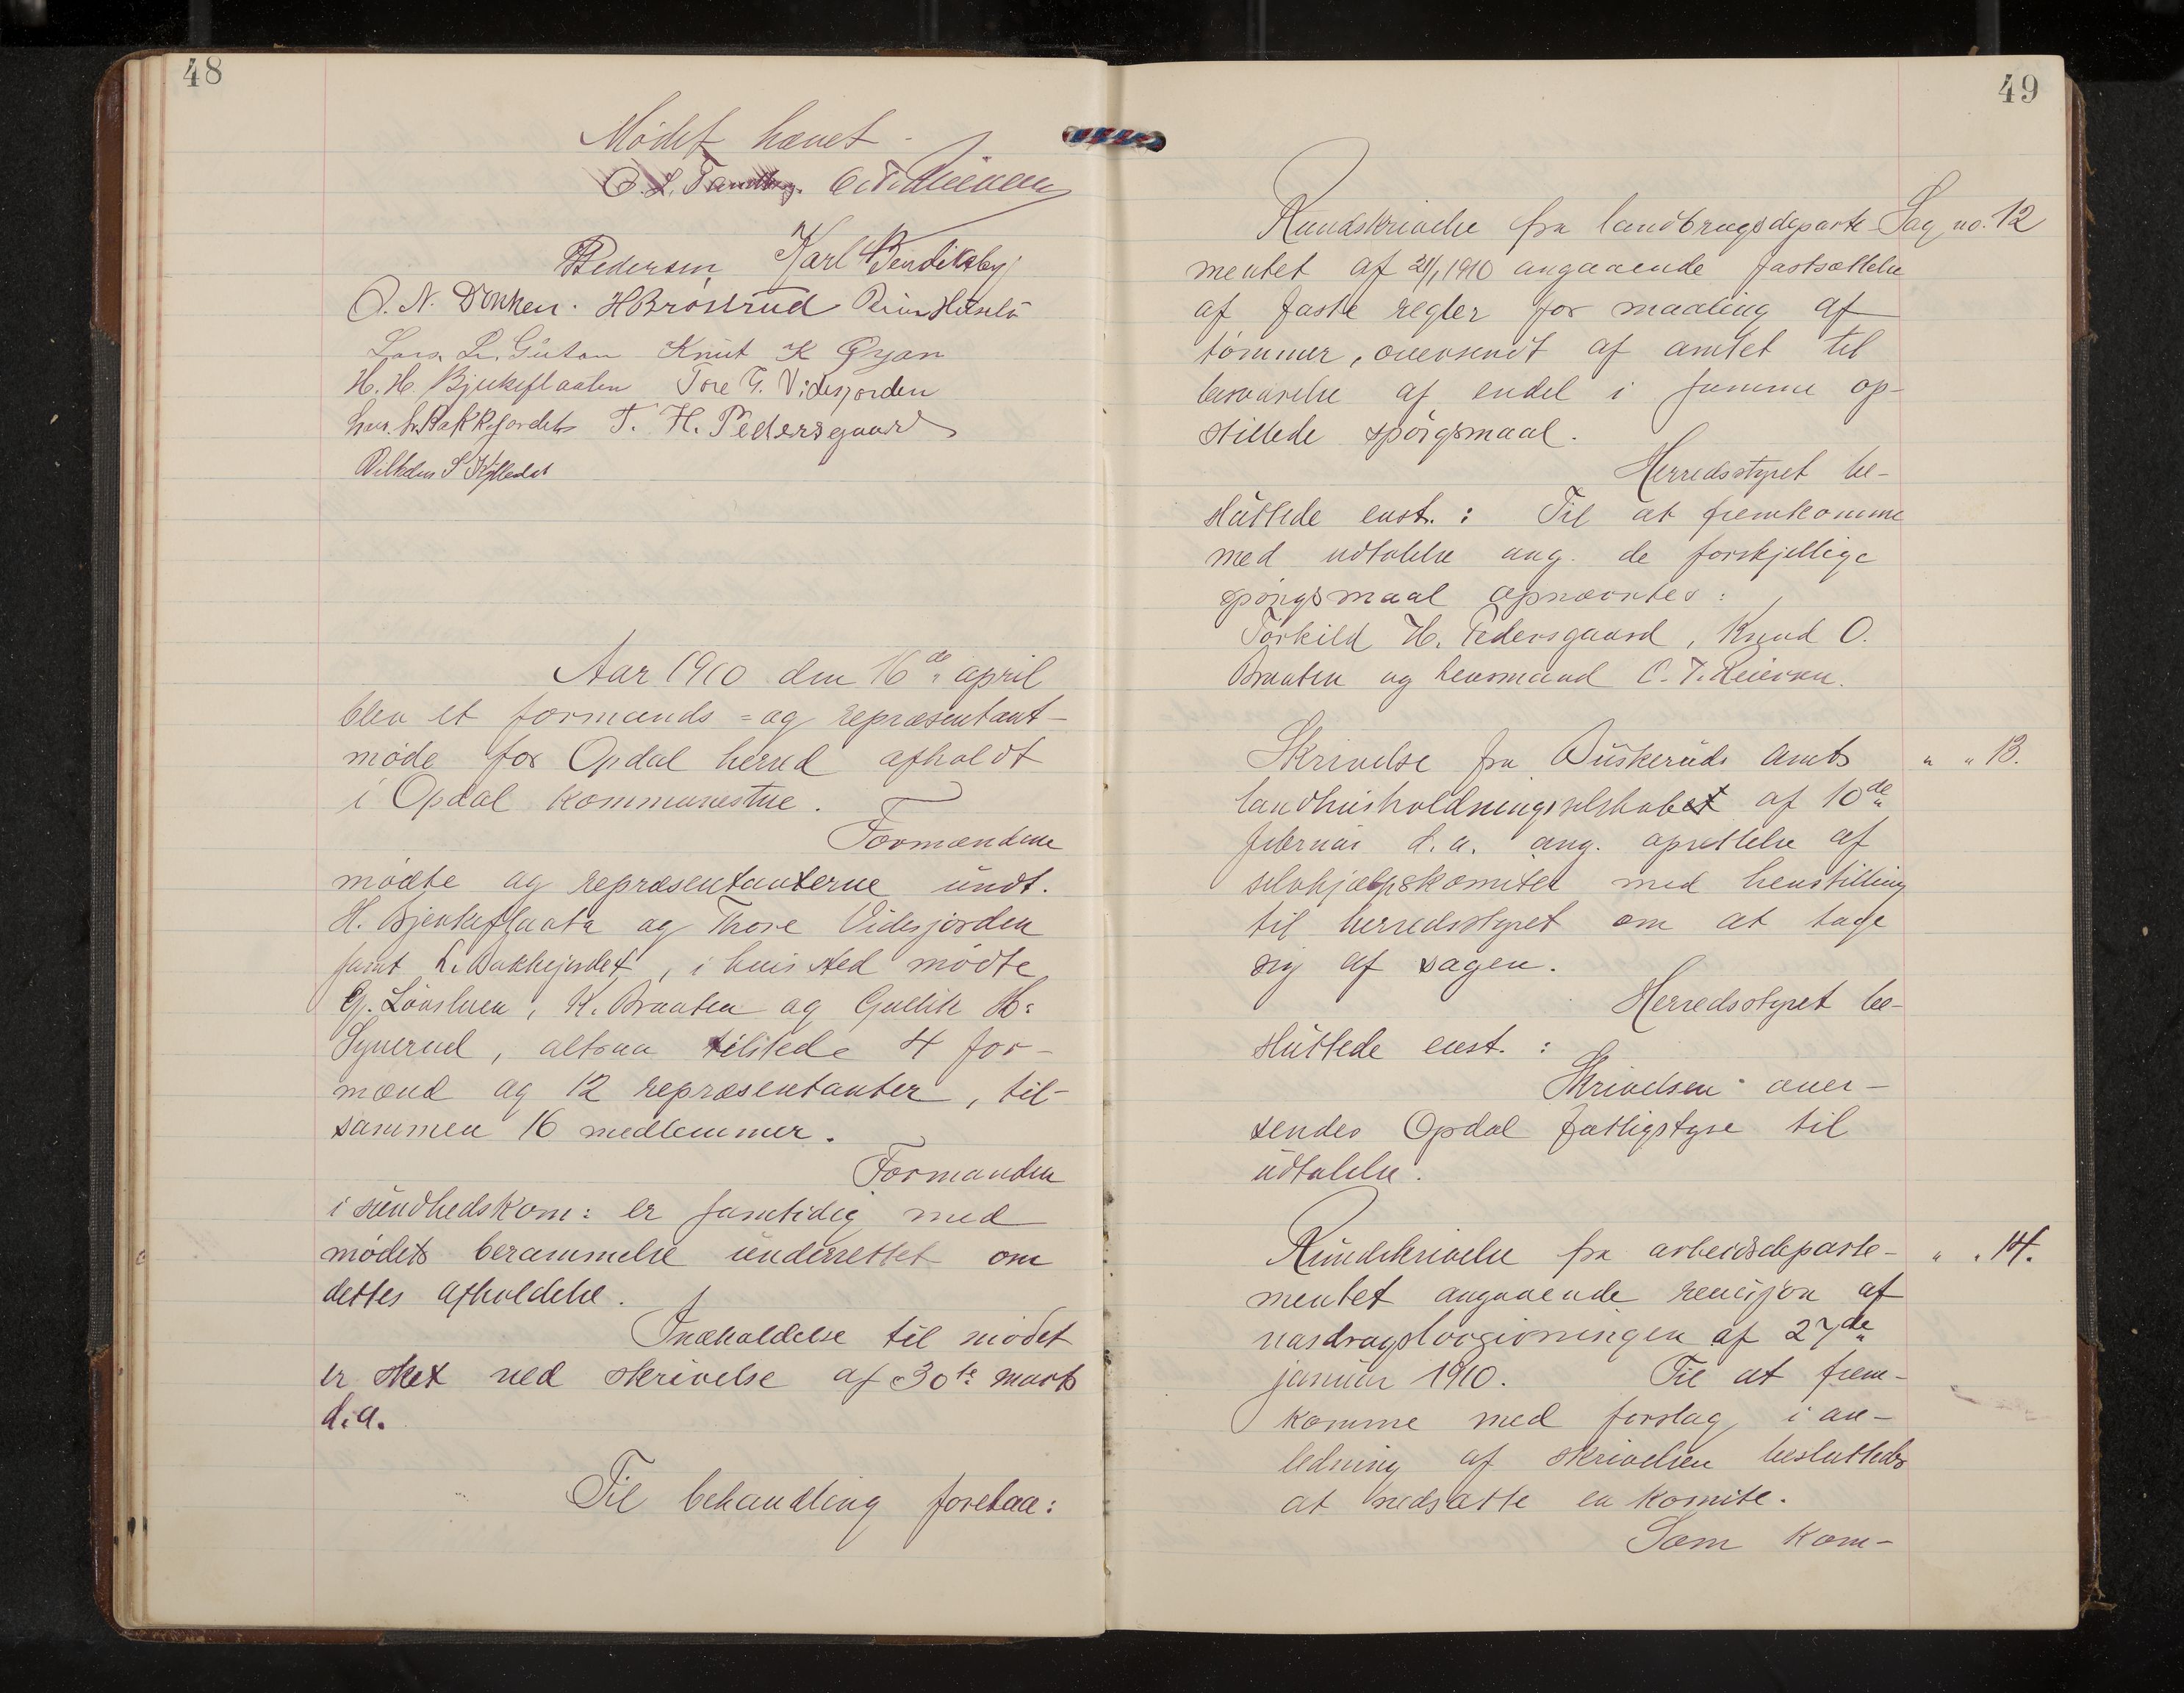 48
Mødet hævet.
O. L.
Pedersen Karl Bendiksby
O. N. Dokken. H Brøstrud
Lars L. Knut K
H. H. Bjerkeflaaten Tore G. Videsjorden
Lars L. Bakkejordet T. H. Pedersgaard
Aar 1910 den 16de april
blev et formands= og repræsentant-
møde for Opdal herred afholdt
i Opdal kommunestue.
Formændene
mødte og repræsentanterne undt.
H. Bjerkeflaata og Thore Videsjorden
samt L. Bakkejordet, i hvis sted mødte
G. Lønsluen, K. Braaten og Gullik H.
Synerud, altsaa tilstede 4 for-
mænd og 12 repræsentanter, til-
sammen 16 medlemmer.
Formanden
i sundhedskom: er samtidig med
mødets berammelse underrettet om
dettes afholdelse.
Indkaldelse til mødet
er sket ved skrivelse af 30te marts
d.a.
Til behandling foretaa:
49
Rundskrivelse fra landbrugsdeparte- Sag no. 12
mentet af 21/1 1910 angaaende fastsættelse
af faste regler for maaling af
tømmer, oversendt af amtet til
besvarelse af endel i samme op-
stillede spørgsmaal.
Herredsstyret be-
sluttede enst.: Til at fremkomme
med udtalelse ang. de forskjellige
spørgsmaal opnævntes:
Torkild H. Pedersgaard, Knud O.
Braaten og lensmand C. T. Reiersen.
Skrivelse fra Buskeruds amts " " 13.
landhusholdningsselskabet af 10de
februar d.a. ang. oprettelse af
selvhjælpskomiteer med henstilling
til herredsstyret om at tage
sig af sagen.
Herredsstyret be-
sluttede enst.:
Skrivelsen over-
sendes Opdal fattigstyre til
udtalelse.
Rundskrivelse fra arbeidsdeparte- " " 14.
mentet angaaende revisjon af
vasdragslovgivningen af 27de
januar 1910. Til at frem-
komme med forslag i an-
ledning af skrivelsen besluttedes
at nedsætte en komite.
Som kom-